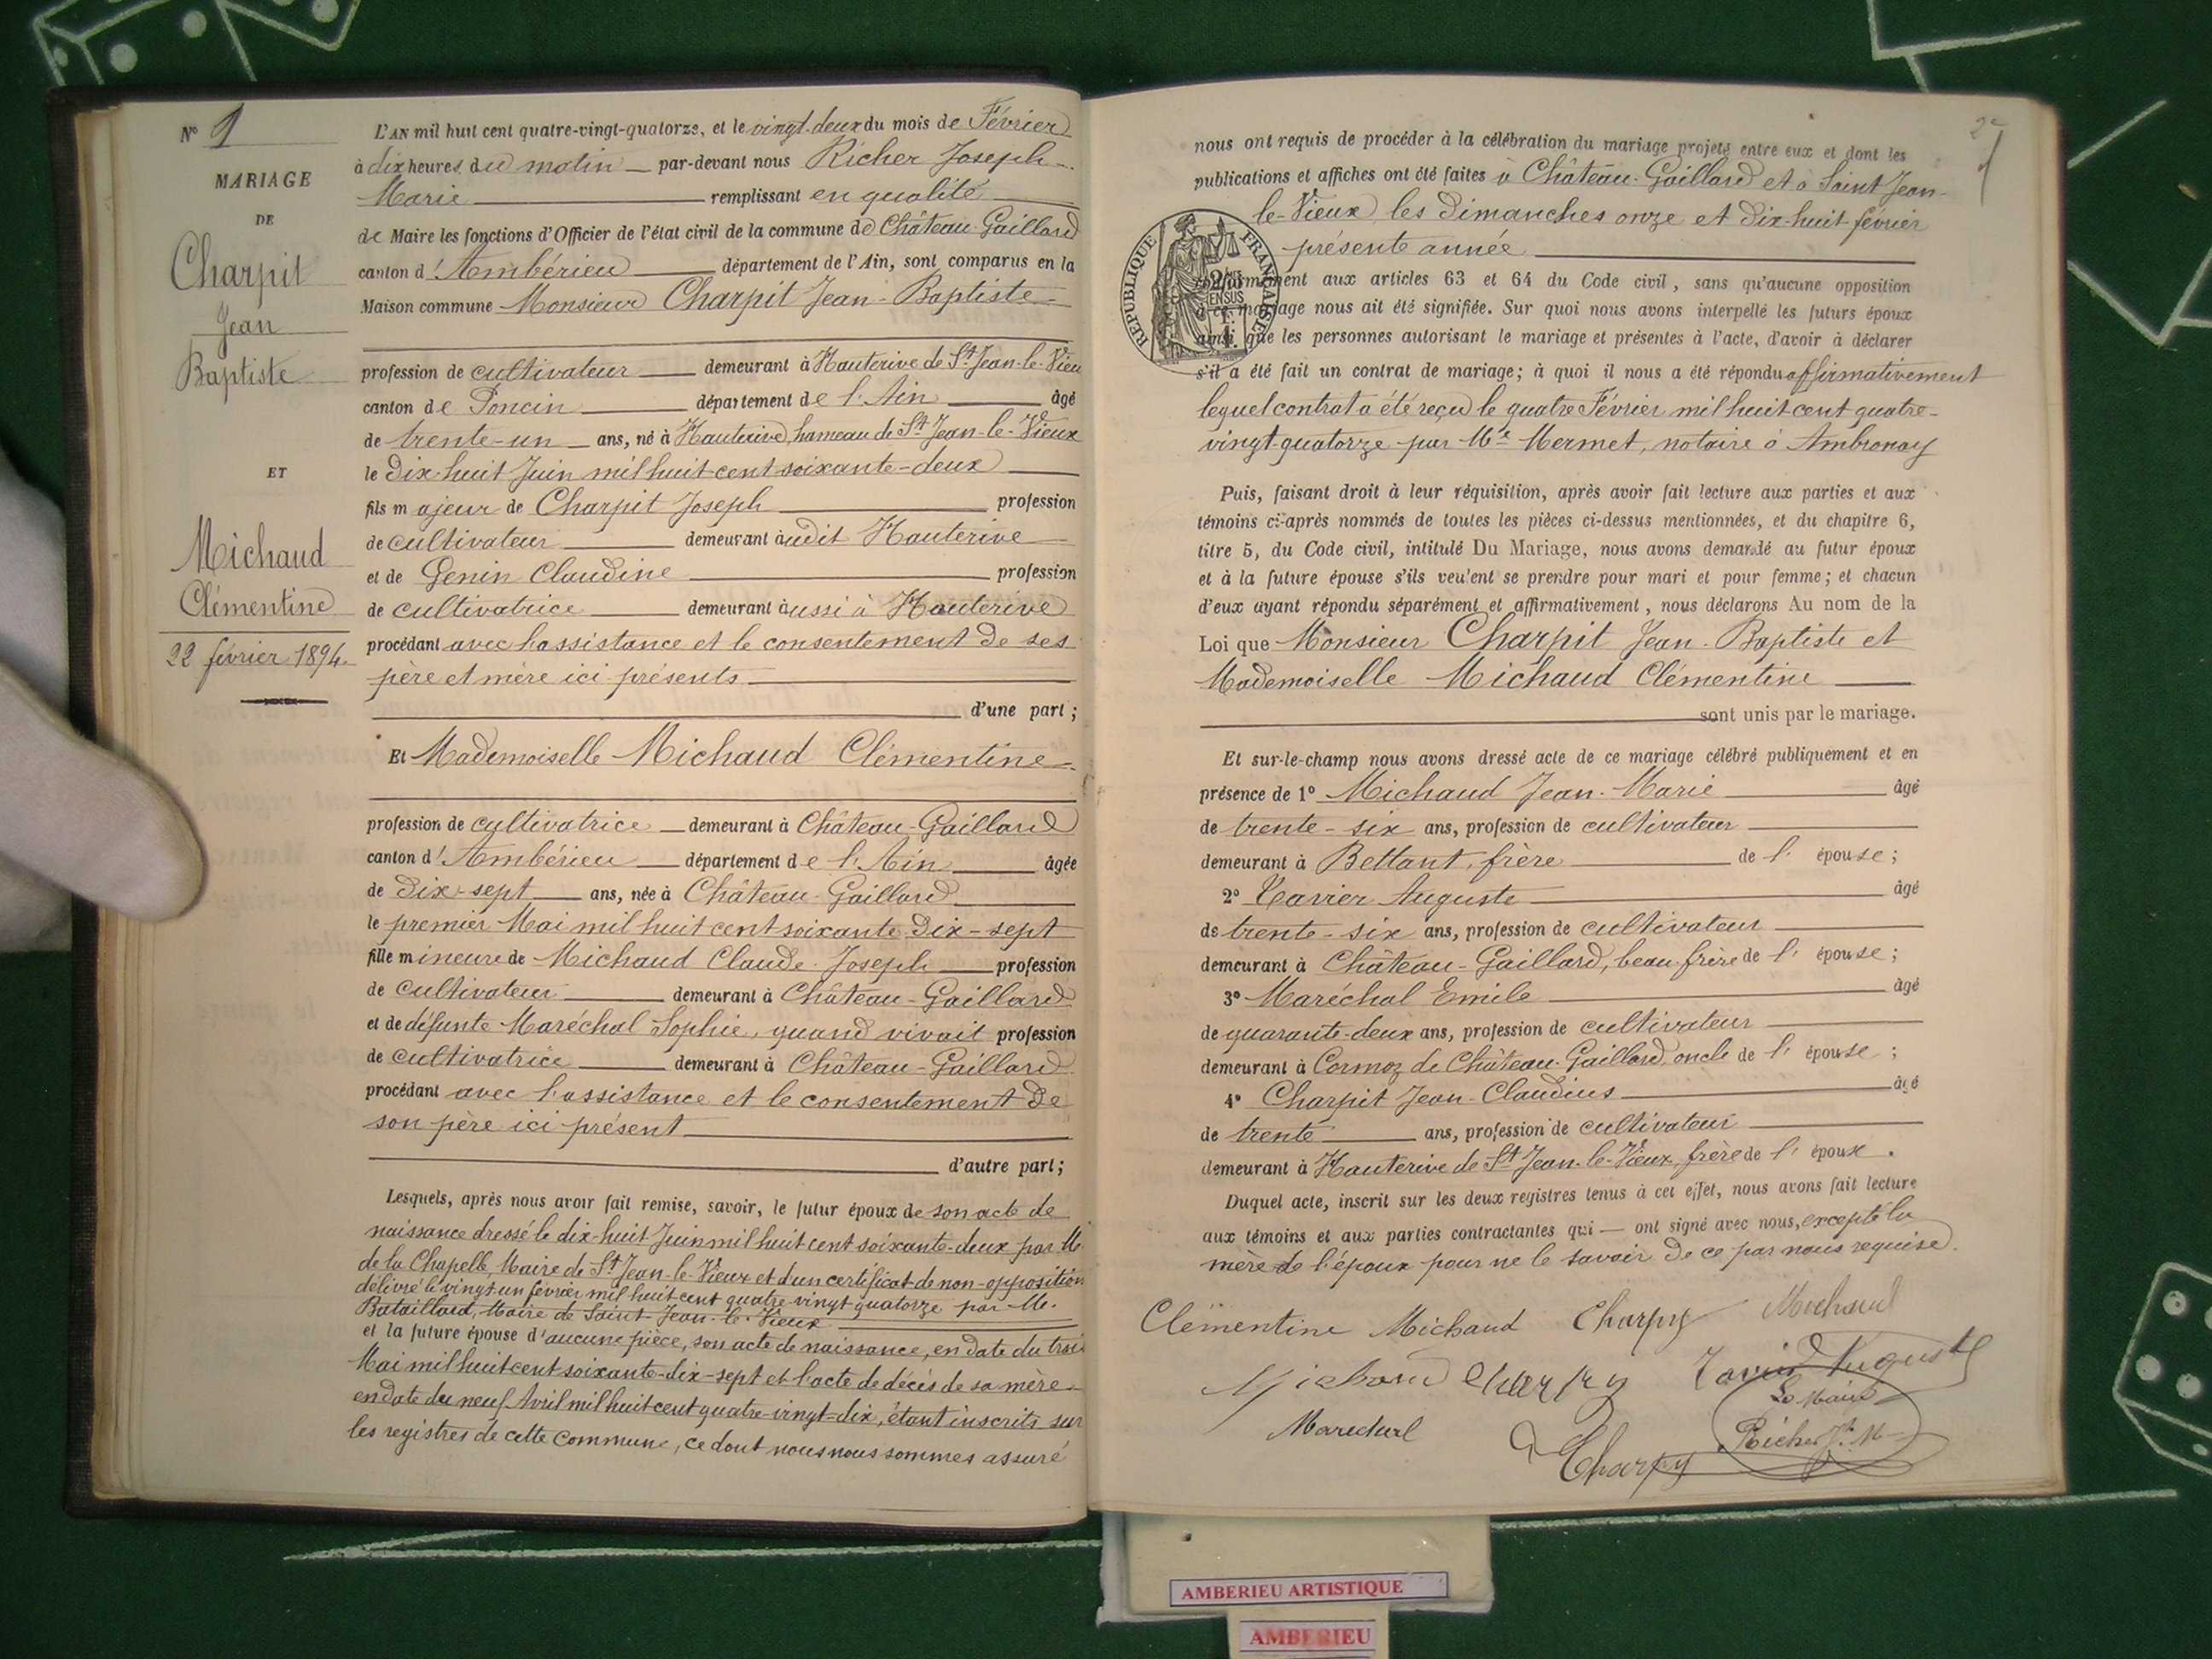 N° 1
MARIAGE
DE
Charpit
Jean
Baptiste
ET
Michaud
Clémentine
22 février 1894.
L'AN mil huit cent quatre-vingt-quatorze, et le vingt-deux du mois de Février
à dix heures du matin par-devant nous Richer Joseph-
Marie remplissant en qualité
de Maire les fonctions d'Officier de l'état civil de la commune de Château-Gaillard
canton d'Ambérieu département de l'Ain, sont comparus en la
Maison commune Monsieur Charpit Jean-Baptiste
profession de cultivateur demeurant à Hauterive de St Jean-le-Vieu
canton de Poncin département de l'Ain âgé
de trente-un ans, né à Hauterive, hameau de St Jean-le-Vieux
le dix-huit Juin mil huit cent soixante-deux
fils majeur de Charpit Joseph profession
de cultivateur demeurant audit Hauterive
et de Genin Claudine profession
de cultivatrice demeurant aussi à Hauterive
procédant avec l'assistance et le consentement de ses
père et mère ici présents
d'une part;
Et Mademoiselle Michaud Clémentine
profession de cultivatrice demeurant à Château-Gaillard
canton d'Ambérieu département de l'Ain âgée
de dix-sept ans, née à Château-Gaillard
le premier Mai mil huit cent soixante dix-sept
fille mineure de Michaud Claude-Joseph profession
de cultivateur demeurant à Château-Gaillard
et de défunte Maréchal Sophie, quand vivait profession
de cultivatrice demeurant à Château-Gaillard
procédant avec l'assistance et le consentement de
son père ici présent
d'autre part;
Lesquels, après nous avoir fait remise, savoir, le futur époux de son acte de
naissance dressé le dix-huit Juin mil huit cent soixante-deux par M.
de la Chapelle, Maire de St Jean-le-Vieux et d'un certificat de non-opposition
délivré le vingt-un février mil huit cent quatre-vingt quatorze par M.
Bataillard, Maire de Saint-Jean-le-Vieux
et la future épouse d'aucune pièce, son acte de naissance, en date du trois
Mai mil huit cent soixante-dix-sept et l'acte de décès de sa mère
en date du neuf Avril mil huit cent quatre-vingt-dix, étant inscrits sur
les registres de cette commune, ce dont nous nous sommes assuré
2e
nous ont requis de procéder à la célébration du mariage projeté entre eux et dont les
publications et affiches ont été faites à Château-Gaillard et à Saint Jean-
le-Vieux, les dimanches onze et dix-huit février
présente année
RÉPUBLIQUE FRANÇAISE
conformément aux articles 63 et 64 du Code civil, sans qu'aucune opposition
à ce mariage nous ait été signifiée. Sur quoi nous avons interpellé les futurs époux
ainsi que les personnes autorisant le mariage et présentes à l'acte, d'avoir à déclarer
s'il a été fait un contrat de mariage; à quoi il nous a été répondu affirmativement
lequel contrat a été reçu le quatre Février mil huit cent quatre-
vingt-quatorze par Me Mermet, notaire à Ambronay
Puis, faisant droit à leur réquisition, après avoir fait lecture aux parties et aux
témoins ci-après nommés de toutes les pièces ci-dessus mentionnées, et du chapitre 6,
titre 5, du Code civil, intitulé Du Mariage, nous avons demandé au futur époux
et à la future épouse s'ils veulent se prendre pour mari et pour femme; et chacun
d'eux ayant répondu séparément et affirmativement, nous déclarons Au nom de la
Loi que Monsieur Charpit Jean-Baptiste et
Mademoiselle Michaud Clémentine
sont unis par le mariage.
Et sur-le-champ nous avons dressé acte de ce mariage célébré publiquement et en
présence de 1° Michaud Jean-Marie âgé
de trente-six ans, profession de cultivateur
demeurant à Bettant, frère de l'épouse;
2° Xavier Auguste âgé
de trente-six ans, profession de cultivateur
demeurant à Château-Gaillard, beau-frère de l'épouse;
3° Maréchal Emile âgé
de quarante-deux ans, profession de cultivateur
demeurant à Cormoz de Château-Gaillard, oncle de l'épouse;
4° Charpit Jean-Claudius âgé
de trente ans, profession de cultivateur
demeurant à Hauterive de St Jean-le-Vieux, frère de l'époux.
Duquel acte, inscrit sur les deux registres tenus à cet effet, nous avons fait lecture
aux témoins et aux parties contractantes qui — ont signé avec nous, excepté la
mère de l'époux pour ne le savoir de ce par nous requise.
Clémentine Michaud Charpy Michaud
Michaud Charpy Xavier Auguste
Le Maire
Marechal Charpy Richer Jh M
AMBERIEU ARTISTIQUE
AMBERIEU